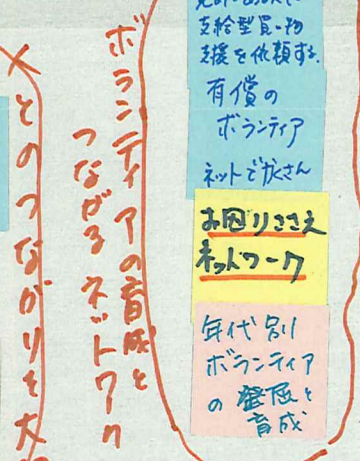 支給型買い物
支援を依頼する.
有償の
ボランティア
ネットでかくさん
お困りささえ
ネットワーク
年代別
ボランティア
の発展と
育成
ボランティアの育成と
つながるネットワーク
人とのつながりを大